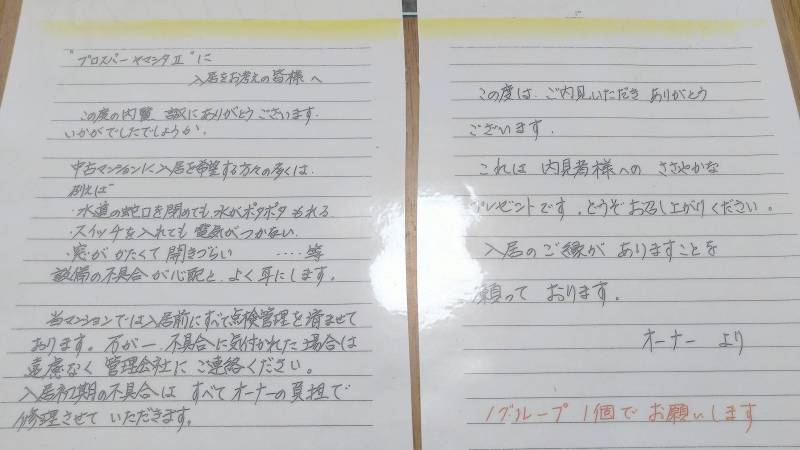 "プロスパーヤマシタⅡ"に
入居をお考えの皆様へ
この度の内覧 誠にありがとうございます.
いかがでしたでしょうか.
中古マンションに入居を希望する方々の多くは.
例えば
・水道の蛇口を閉めても水がポタポタもれる
・スイッチを入れても電気がつかない.
・窓がかたくて開きづらい ‥‥等
設備の不具合が心配と、よく耳にします。
当マンションでは入居前にすべて点検管理を済ませて
おります。万が一、不具合に気付かれた場合は
遠慮なく管理会社にご連絡ください。
入居初期の不具合はすべてオーナーの負担で
修理させていただきます。
この度は、ご内見いただきありがとう
ございます.
これは内見者様へのささやかな
プレゼントです.どうぞお召し上がりください。
入居のご縁がありますことを
願っております.
オーナーより
1グループ1個でお願いします